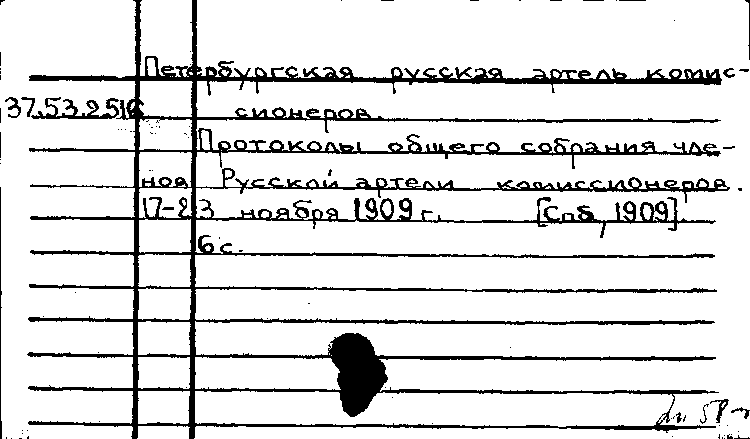 Петербургская русская артель комис-
37.53.2.516 сионеров.
Протоколы общего собрания чле-
нов Русской артели комиссионеров.
17-23 ноября 1909 г. [Спб, 1909]
6 с.